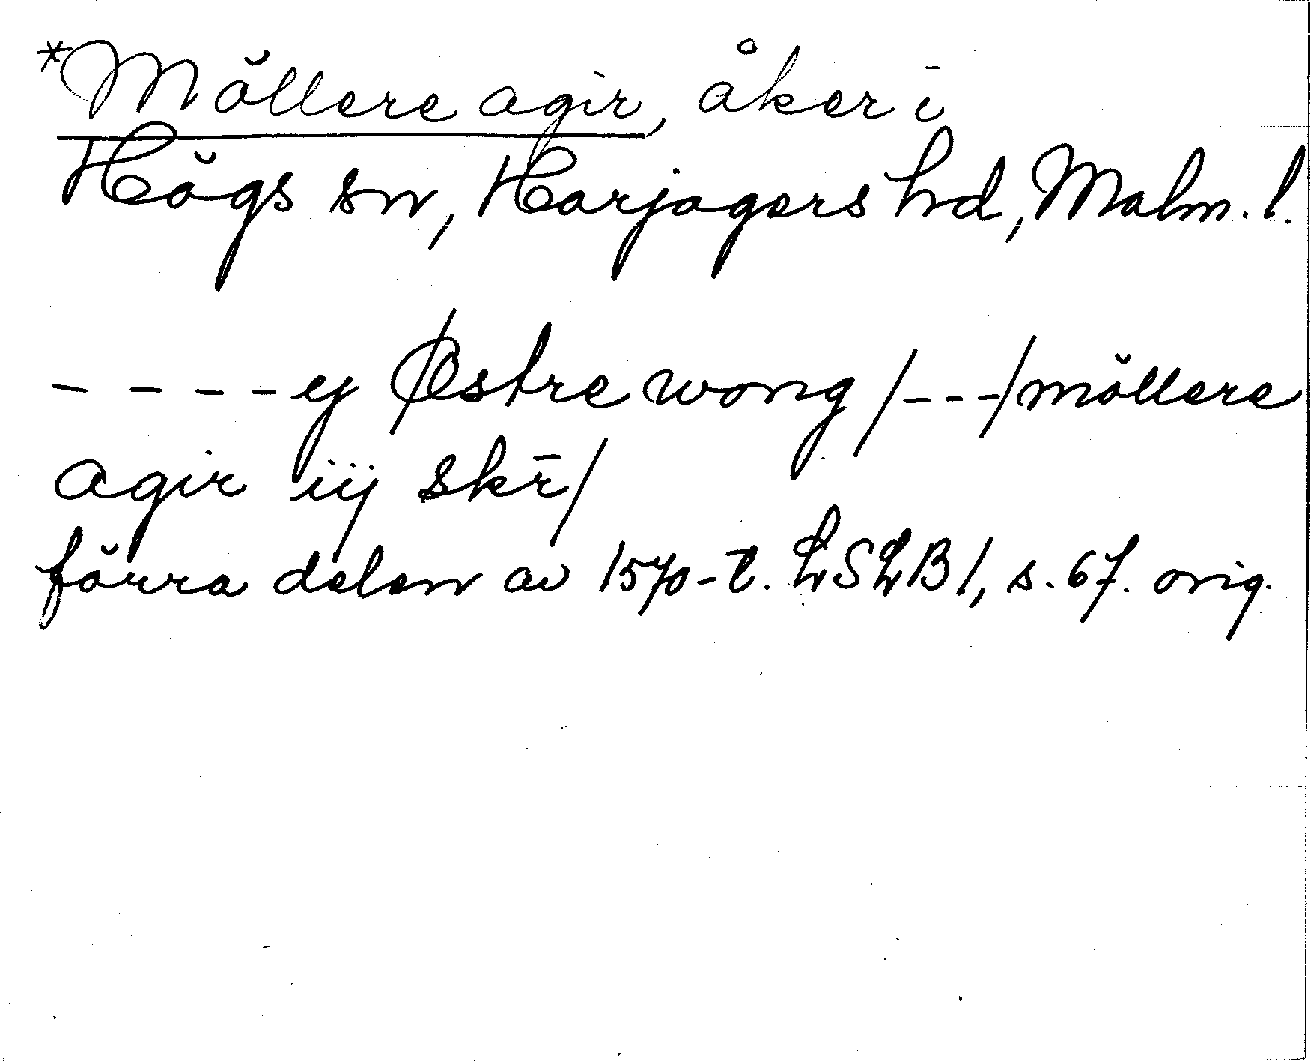 *Möllere agir, åker i
Högs sn, Harjagers hd, Malm. l.
- - - - ej Østre wong /---/ möllere
agir iij skr̄/
förra delen av 1570-t. LSLB 1, s. 67. orig.